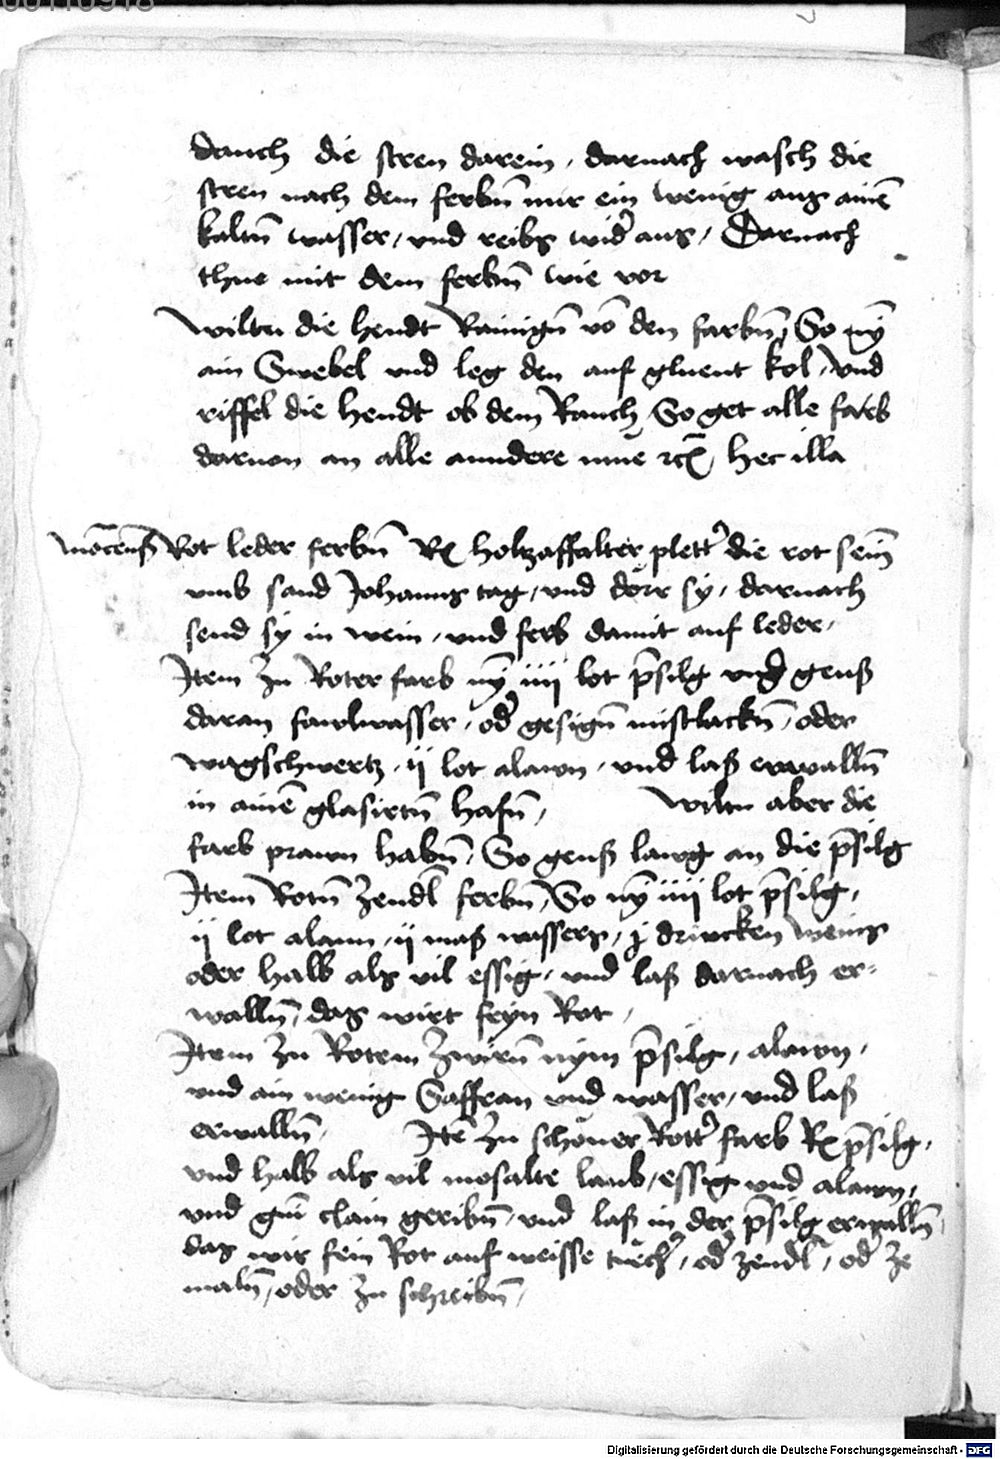 dauch die stren darein, darnach wasch die
stren nach dem ferbn̄ nur ein wenig aus ainē
kaltn̄ wasser, vnd reibs wid̓ aus, Darnach
thue mit dem ferbn̄ wie vor
Wiltu die hendt Rainign̄ vō den farbn̄, So nȳ
ain Swebel vnd leg den auf gluent kol, vnd
riffel die hendt ob dem Rauch, So get alle farb
daruon an alle anndere mue rc̄, hec illa
Rot leder ferbn̄ Rc holtzaffalter plett̓ die rot sein
vmb sand Johanns tag, vnd dörr sy, darnach
send sy in wein, vnd ferb damit auf leder,
Item zu Roter farb nȳ iiij lot p̄silg vnd geuß
daran faulwasser, od̓ gesign̄ mistlackn̄, oder
wagschwertz, ij lot alawn, vnd laß erwalln̄
in ainē glasirtn̄ hafn̄, Wiltu aber die
farb prawn habn̄, So geuß lawg an die p̄silg
Item Rotn̄ Zendl ferbn̄, So nȳ iiij lot p̄silg,
ij lot alaun, ij maß wassers, j drincken weins
oder halb als vil essig, vnd laß darnach er=
walln̄, das wirt feyn Rot,
Item zu Rotem Zwirn̄ nym p̄silg, alawn,
vnd ain wenig Saffran vnd wasser, vnd laß
erwalln̄, Itē zu schöner Rott̓ farb Rc p̄silg,
vnd halb als vil mosalte laub, essig vnd alawn,
vnd gūi clain geribn̄, vnd laß in der p̄silg erwalln̄,
das wir fein Rot auf weisse tüech̓, od̓ zendl̄, od̓ ze
maln̄, oder zu schreibn̄,
Digitalisierung gefördert durch die Deutsche Forschungsgemeinschaft - DFG